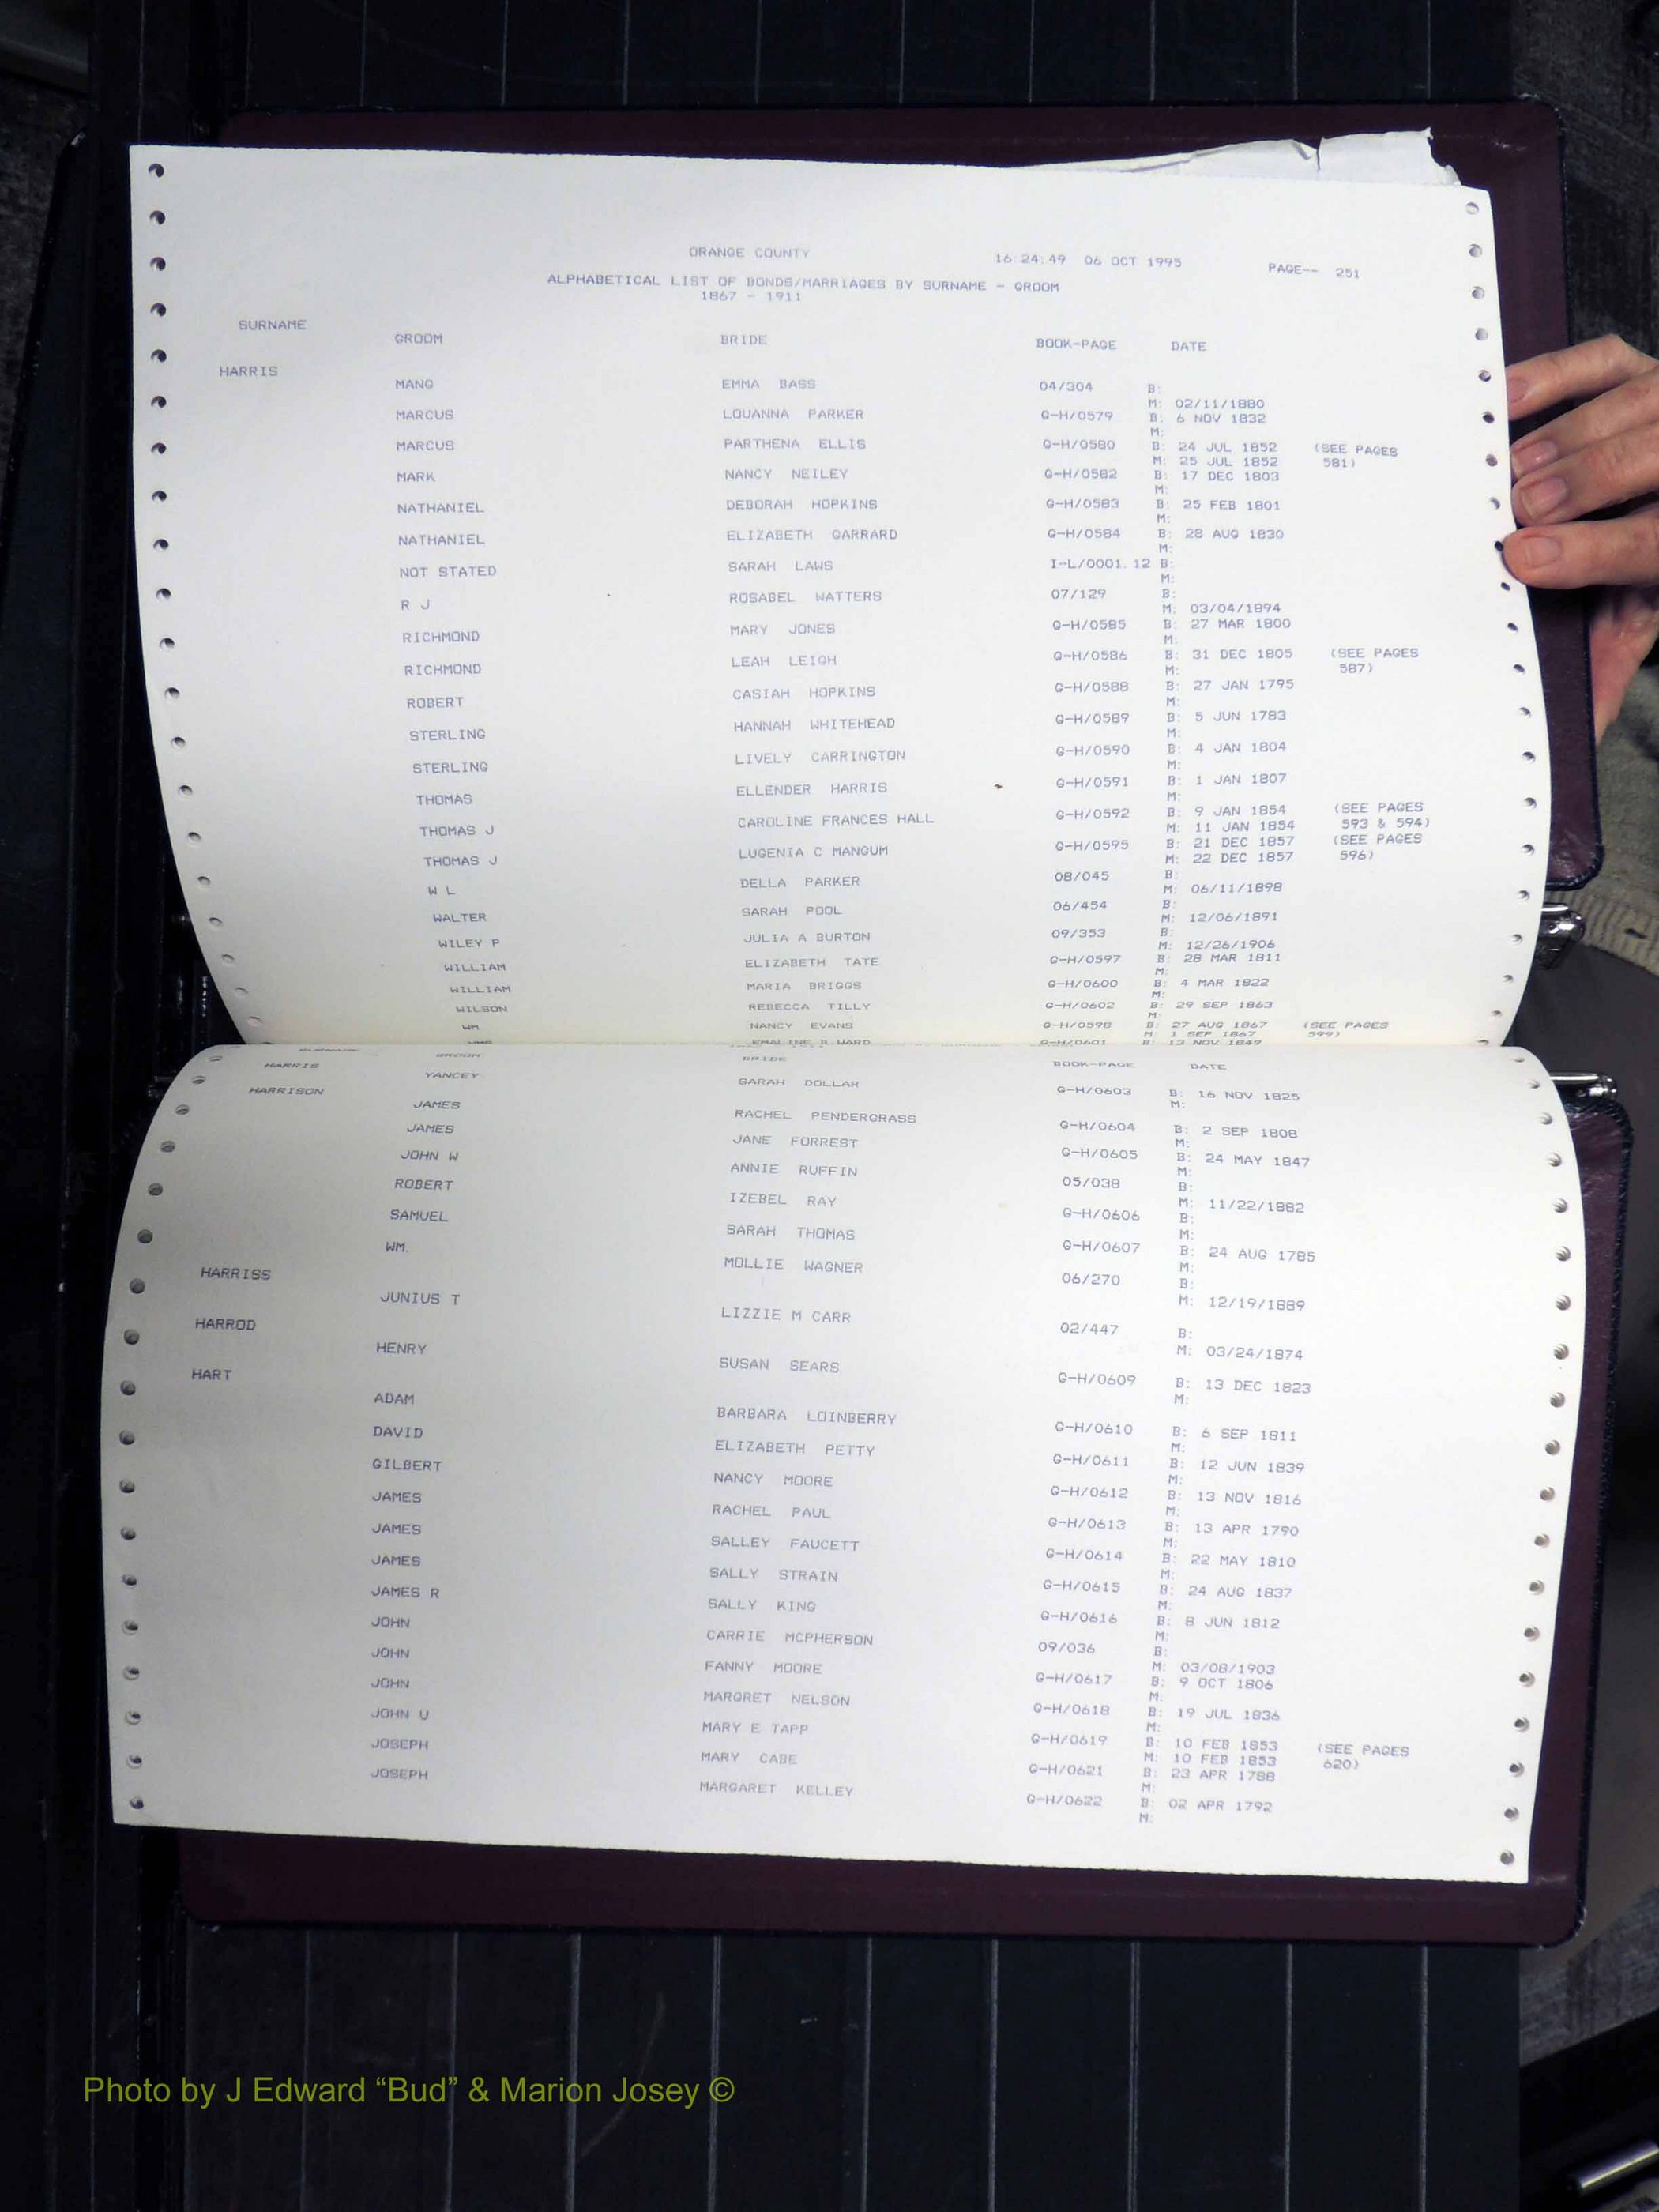 ORANGE COUNTY 16:24:49 06 OCT 1995 PAGE-- 251
ALPHABETICAL LIST OF BONDS/MARRIAGES BY SURNAME - GROOM
1867 - 1911
SURNAME GROOM BRIDE BOOK-PAGE DATE
HARRIS
MANG EMMA BASS 04/304 B:
M: 02/11/1880
MARCUS LOUANNA PARKER G-H/0579 B: 6 NOV 1832
M:
MARCUS PARTHENA ELLIS G-H/0580 B: 24 JUL 1852 (SEE PAGES
M: 25 JUL 1852 581)
MARK NANCY NEILEY G-H/0582 B: 17 DEC 1803
M:
NATHANIEL DEBORAH HOPKINS G-H/0583 B: 25 FEB 1801
M:
NATHANIEL ELIZABETH GARRARD G-H/0584 B: 28 AUG 1830
M:
NOT STATED SARAH LAWS I-L/0001.12 B:
M:
R J ROSABEL WATTERS 07/129 B:
M: 03/04/1894
RICHMOND MARY JONES G-H/0585 B: 27 MAR 1800
M:
RICHMOND LEAH LEIGH G-H/0586 B: 31 DEC 1805 (SEE PAGES
M: 587)
ROBERT CASIAH HOPKINS G-H/0588 B: 27 JAN 1795
M:
STERLING HANNAH WHITEHEAD G-H/0589 B: 5 JUN 1783
M:
STERLING LIVELY CARRINGTON G-H/0590 B: 4 JAN 1804
M:
THOMAS ELLENDER HARRIS G-H/0591 B: 1 JAN 1807
M:
THOMAS J CAROLINE FRANCES HALL G-H/0592 B: 9 JAN 1854 (SEE PAGES
M: 11 JAN 1854 593 & 594)
THOMAS J LUGENIA C MANGUM G-H/0595 B: 21 DEC 1857 (SEE PAGES
M: 22 DEC 1857 596)
W L DELLA PARKER 08/045 B:
M: 06/11/1898
WALTER SARAH POOL 06/454 B:
M: 12/06/1891
WILEY P JULIA A BURTON 09/353 B:
M: 12/26/1906
WILLIAM ELIZABETH TATE G-H/0597 B: 28 MAR 1811
M:
WILLIAM MARIA BRIGGS G-H/0600 B: 4 MAR 1822
M:
WILSON REBECCA TILLY G-H/0602 B: 29 SEP 1863
M:
WM NANCY EVANS G-H/0598 B: 27 AUG 1867 (SEE PAGES
M: 1 SEP 1867 599)
EMALINE B WARD G-H/0601 B: 13 NOV 1849
SURNAME GROOM BRIDE BOOK-PAGE DATE
HARRIS
YANCEY SARAH DOLLAR G-H/0603 B: 16 NOV 1825
M:
HARRISON
JAMES RACHEL PENDERGRASS G-H/0604 B: 2 SEP 1808
M:
JAMES JANE FORREST G-H/0605 B: 24 MAY 1847
M:
JOHN W ANNIE RUFFIN 05/038 B:
M: 11/22/1882
ROBERT IZEBEL RAY G-H/0606 B:
M:
SAMUEL SARAH THOMAS G-H/0607 B: 24 AUG 1785
M:
WM. MOLLIE WAGNER 06/270 B:
M: 12/19/1889
HARRISS
JUNIUS T LIZZIE M CARR 02/447 B:
M: 03/24/1874
HARROD
HENRY SUSAN SEARS G-H/0609 B: 13 DEC 1823
M:
HART
ADAM BARBARA LOINBERRY G-H/0610 B: 6 SEP 1811
M:
DAVID ELIZABETH PETTY G-H/0611 B: 12 JUN 1839
M:
GILBERT NANCY MOORE G-H/0612 B: 13 NOV 1816
M:
JAMES RACHEL PAUL G-H/0613 B: 13 APR 1790
M:
JAMES SALLEY FAUCETT G-H/0614 B: 22 MAY 1810
M:
JAMES SALLY STRAIN G-H/0615 B: 24 AUG 1837
M:
JAMES R SALLY KING G-H/0616 B: 8 JUN 1812
M:
JOHN CARRIE MCPHERSON 09/036 B:
M: 03/08/1903
JOHN FANNY MOORE G-H/0617 B: 9 OCT 1806
M:
JOHN MARGRET NELSON G-H/0618 B: 19 JUL 1836
M:
JOHN U MARY E TAPP G-H/0619 B: 10 FEB 1853 (SEE PAGES
M: 10 FEB 1853 620)
JOSEPH MARY CABE G-H/0621 B: 23 APR 1788
M:
JOSEPH MARGARET KELLEY G-H/0622 B: 02 APR 1792
M:
Photo by J Edward “Bud” & Marion Josey ©